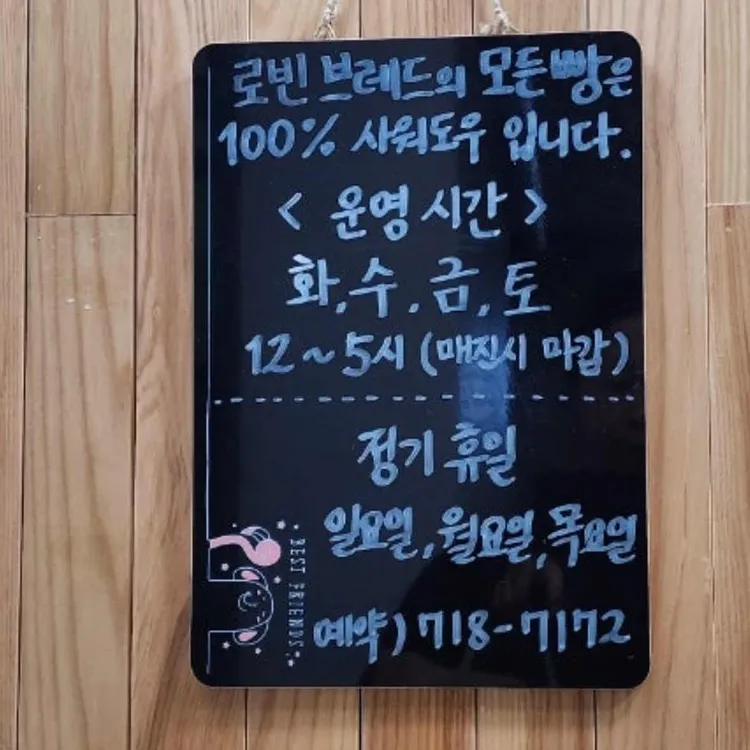 로빈 브레드의 모든 빵은
100% 사워도우 입니다.
< 운영 시간 >
화, 수, 금, 토
12 ~ 5시 (매진시 마감)
정기 휴일
일요일, 월요일, 목요일
예약) 718-7172
BEST FRIENDS